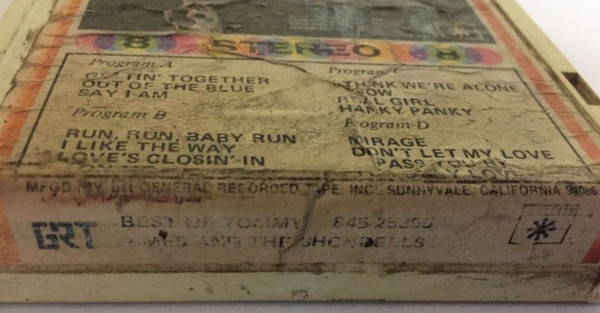 8 STEREO 8
Program A
GETTIN' TOGETHER
OUT OF THE BLUE
SAY I AM
Program B
RUN, RUN, BABY RUN
I LIKE THE WAY
LOVE'S CLOSIN' IN
Program C
THINK WE'RE ALONE
NOW
REAL GIRL
HANKY PANKY
Program D
MIRAGE
DON'T LET MY LOVE
PASS YOU BY
MY LOVE
MFGD. BY GRT GENERAL RECORDED TAPE, INC. SUNNYVALE, CALIFORNIA 94086
GRT
BEST OF TOMMY
JAMES AND THE SHONDELLS